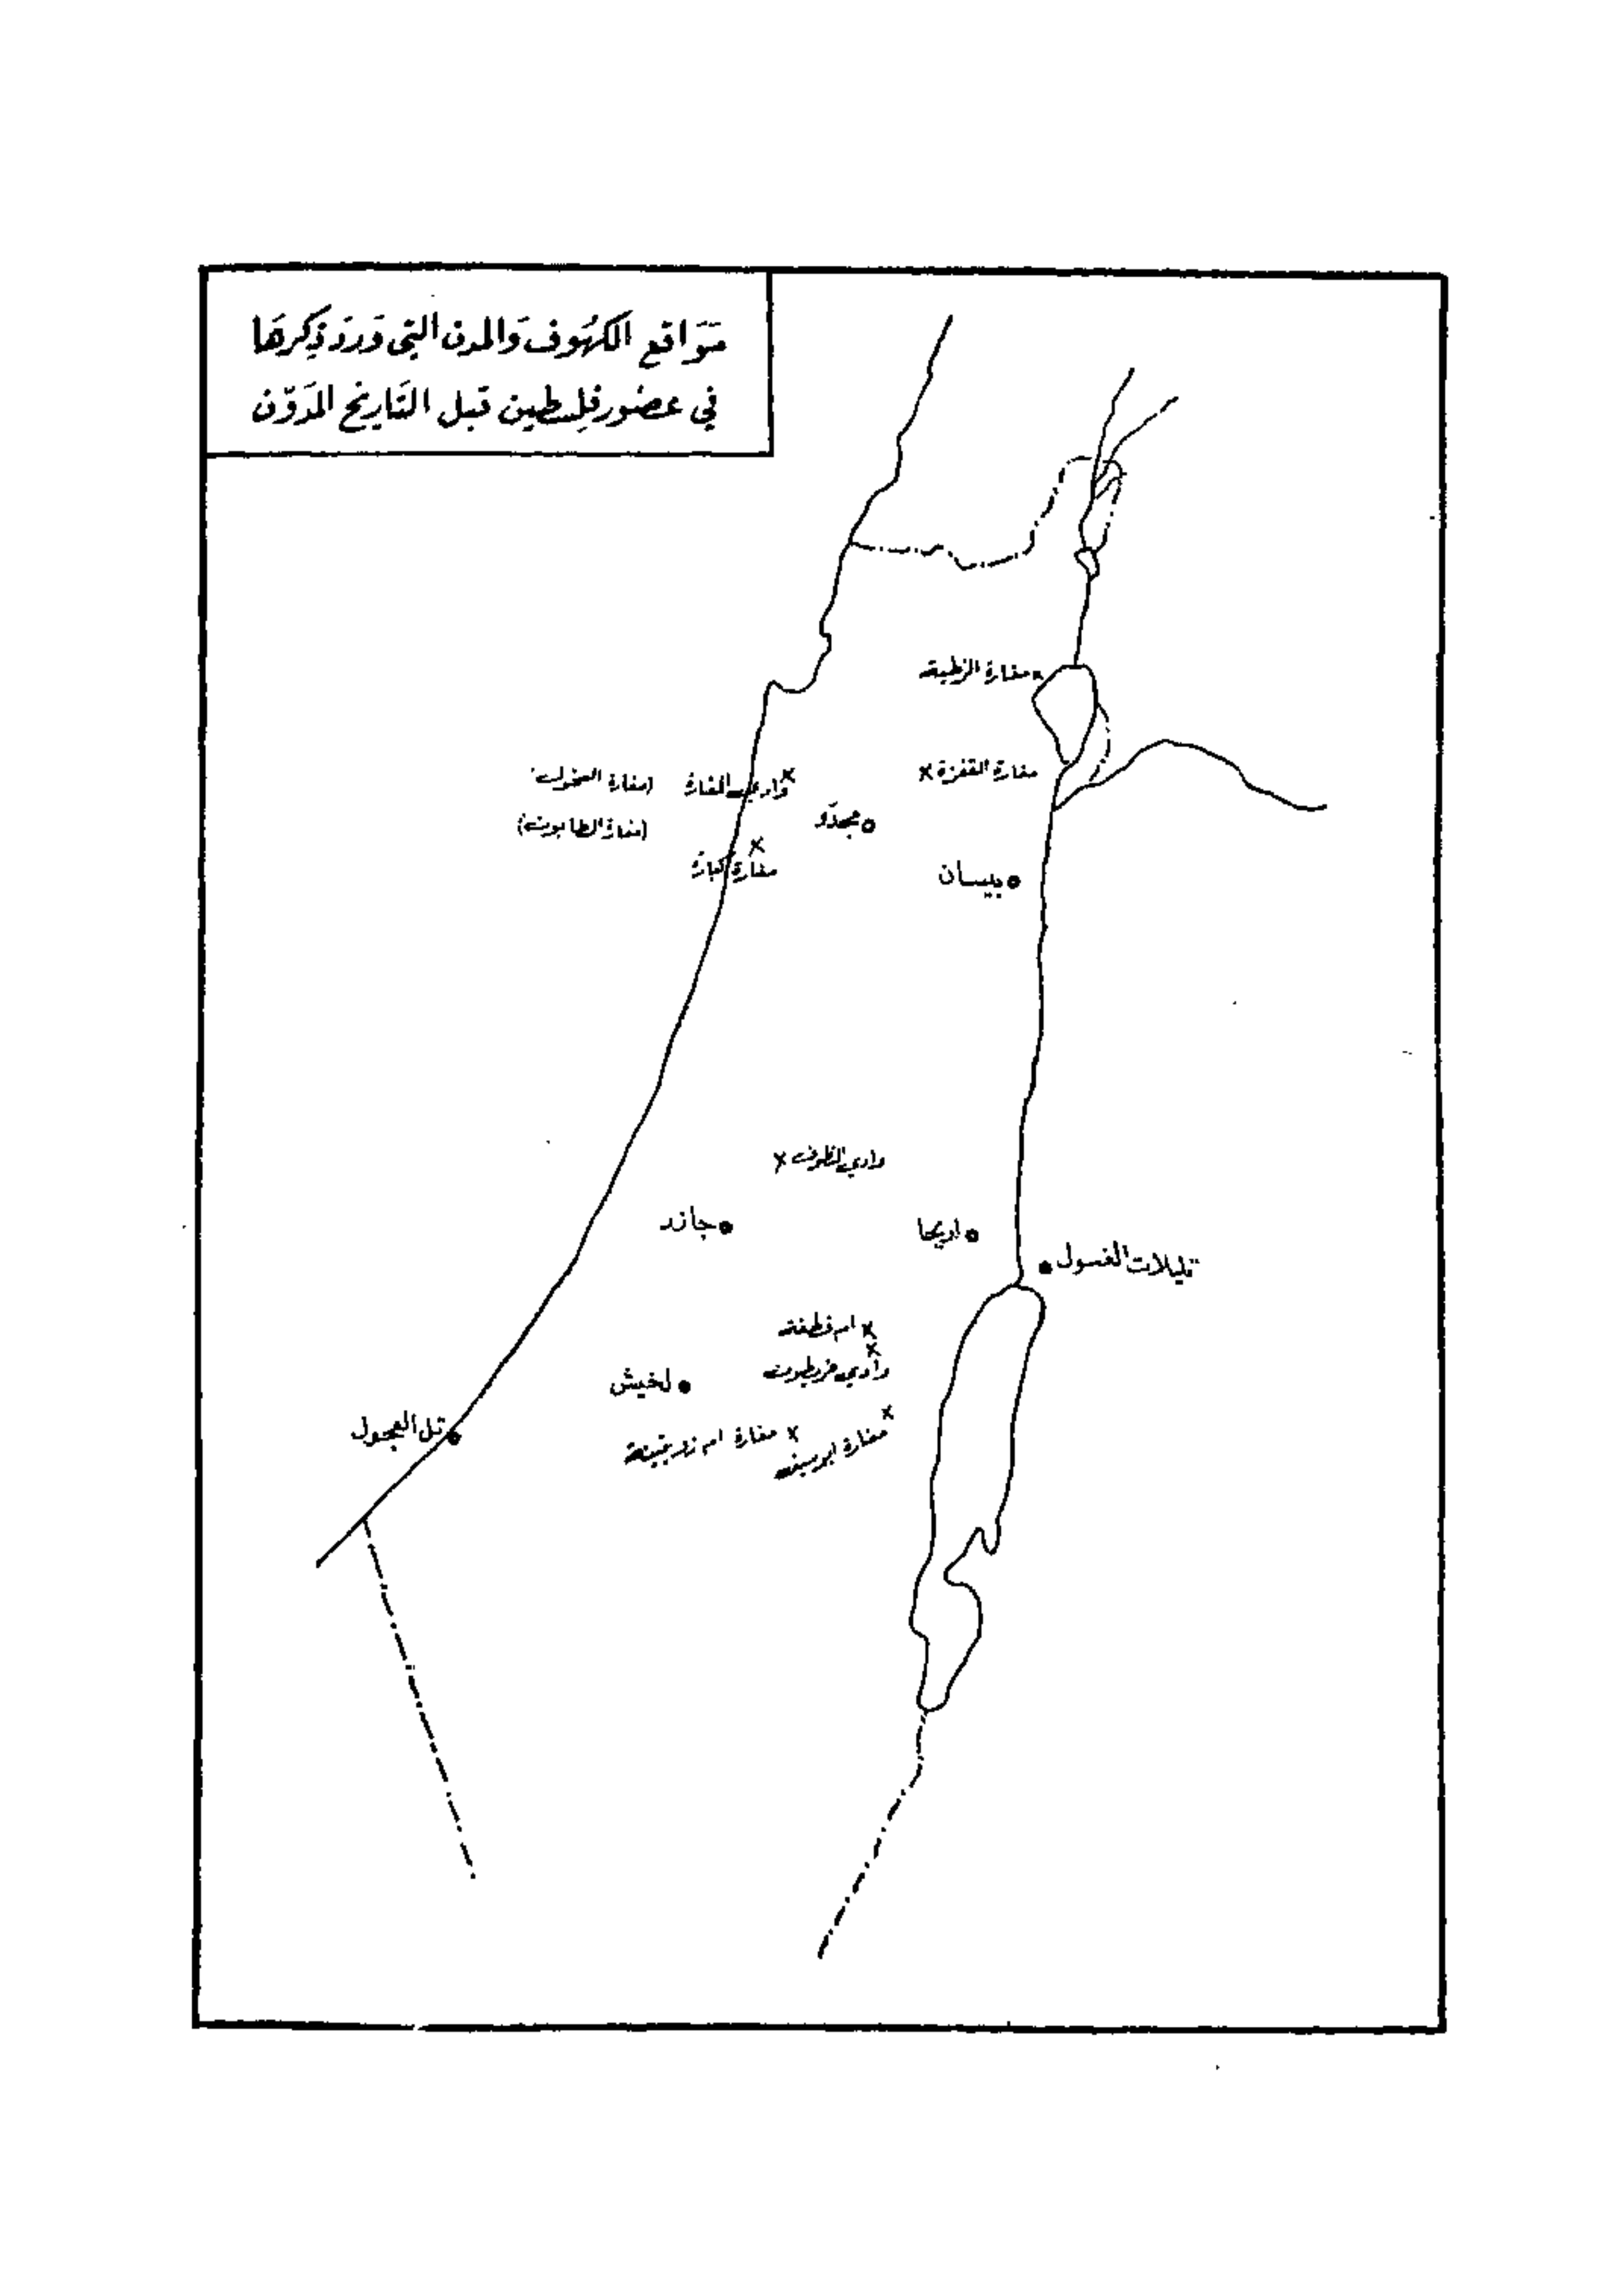 مَوَاقع الكهُوف وَالمدن التي وَردَ ذِكرهَا
في عصُور فلِسطين قبل التَاريخ المدَوّن
مغارة الزطية
مغارة القفزة
وادي المغارة
(مغارة السخول
(مغارة الطابون)
مجدّو
مغارة كبارة
بيسان
وادي النطوف
جازر
اريحا
تليلات الغسول
ام قطفة
وادي خريطون
لخيش
تل العجول
مغارة ام
مغارة ابو سيف